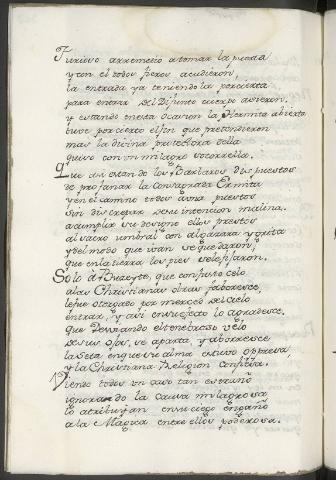 Furioso arremetio a tomar la puerta
y con el todos fieros acudieron
la entrada ya teniendo la por cierta
para entrar del Difunto cuerpo asieron,
y estando en esta ocasion la Hermita abierta
tuvo por cierto el fin que pretendieron
mas la divina protectora della
quiso con un milagro socorrella.
Que assi estando los Barbaros dispuestos
de profanar la Consagrada Ermita
y en el camino todos a una puestos
sin discrepar de su intencion malina.
a cumplir su designo ellos prestos
al sacro umbral con algazara y grita
y del modo que ivan se quedaron,
que en la tierra los pies se les fixaron.
Solo à Buzeyte, que con justo celo
a las Christianas obras faborece,
le fue otorgado por merced del cielo
entrar, y assi en su rejecto lo agradesce.
que Desviando el tenebroso velo
de sus ojos, se aparta, y aborresce
la seta en que su alma estuvo opressa,
y a la Christiana Religion confiesa.
Viendo todos un caso tan estraño
ignorando la causa milagrosa
lo atribuyan en su ciego engaño
a la Magica entre ellos poderosa.